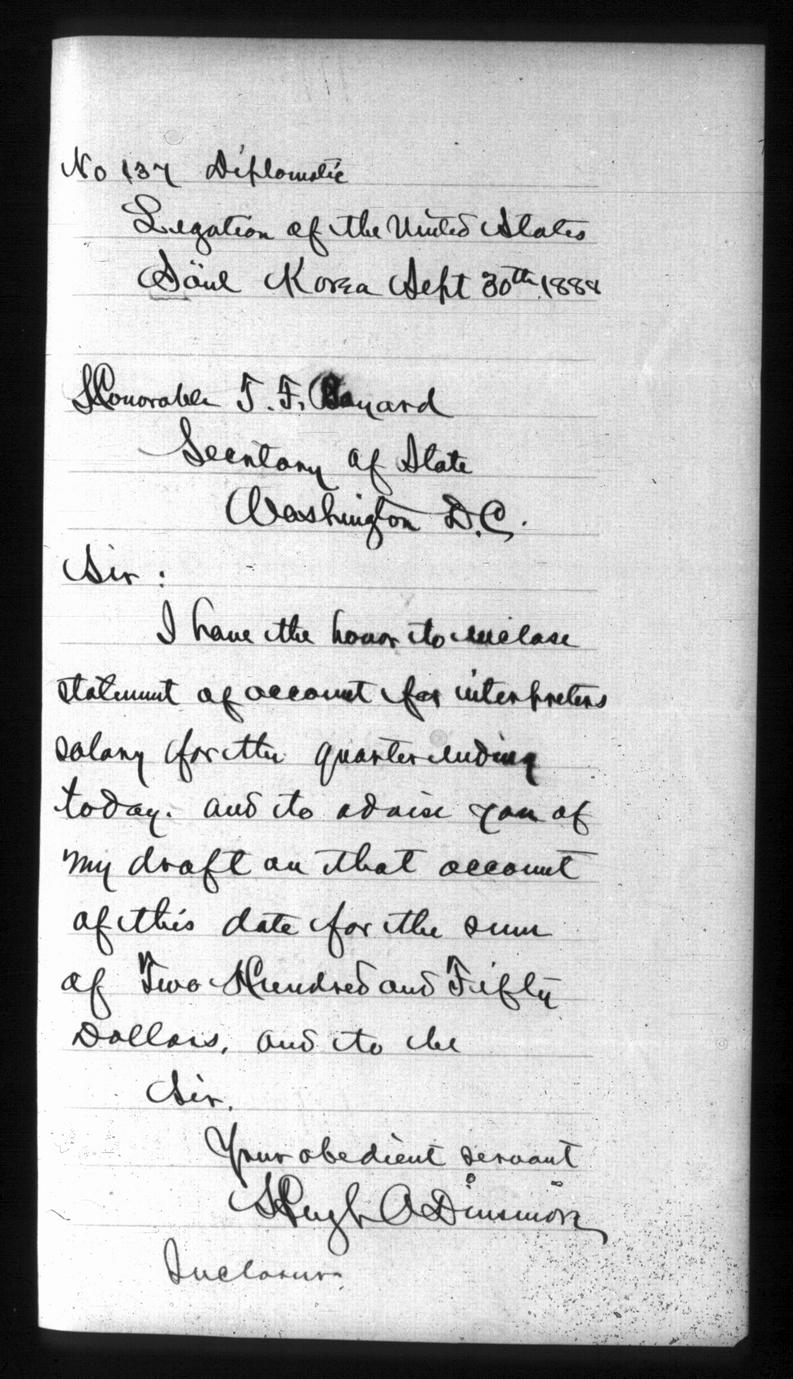 No 137 Diplomatic
Legation of the United States
Söul Korea Sept 30th 1888
Honorable T. F. Bayard
Secretary of State
Washington D.C.
Sir:
I have the honor to enclose
statement of account for interpreters
salary for the quarter ending
today. and to advise you of
my draft on that account
of this date for the sum
of Two Hundred and Fifty
Dollars, and to be
Sir.
Your obedient servant
Hugh A Dinsmore
Inclosure.